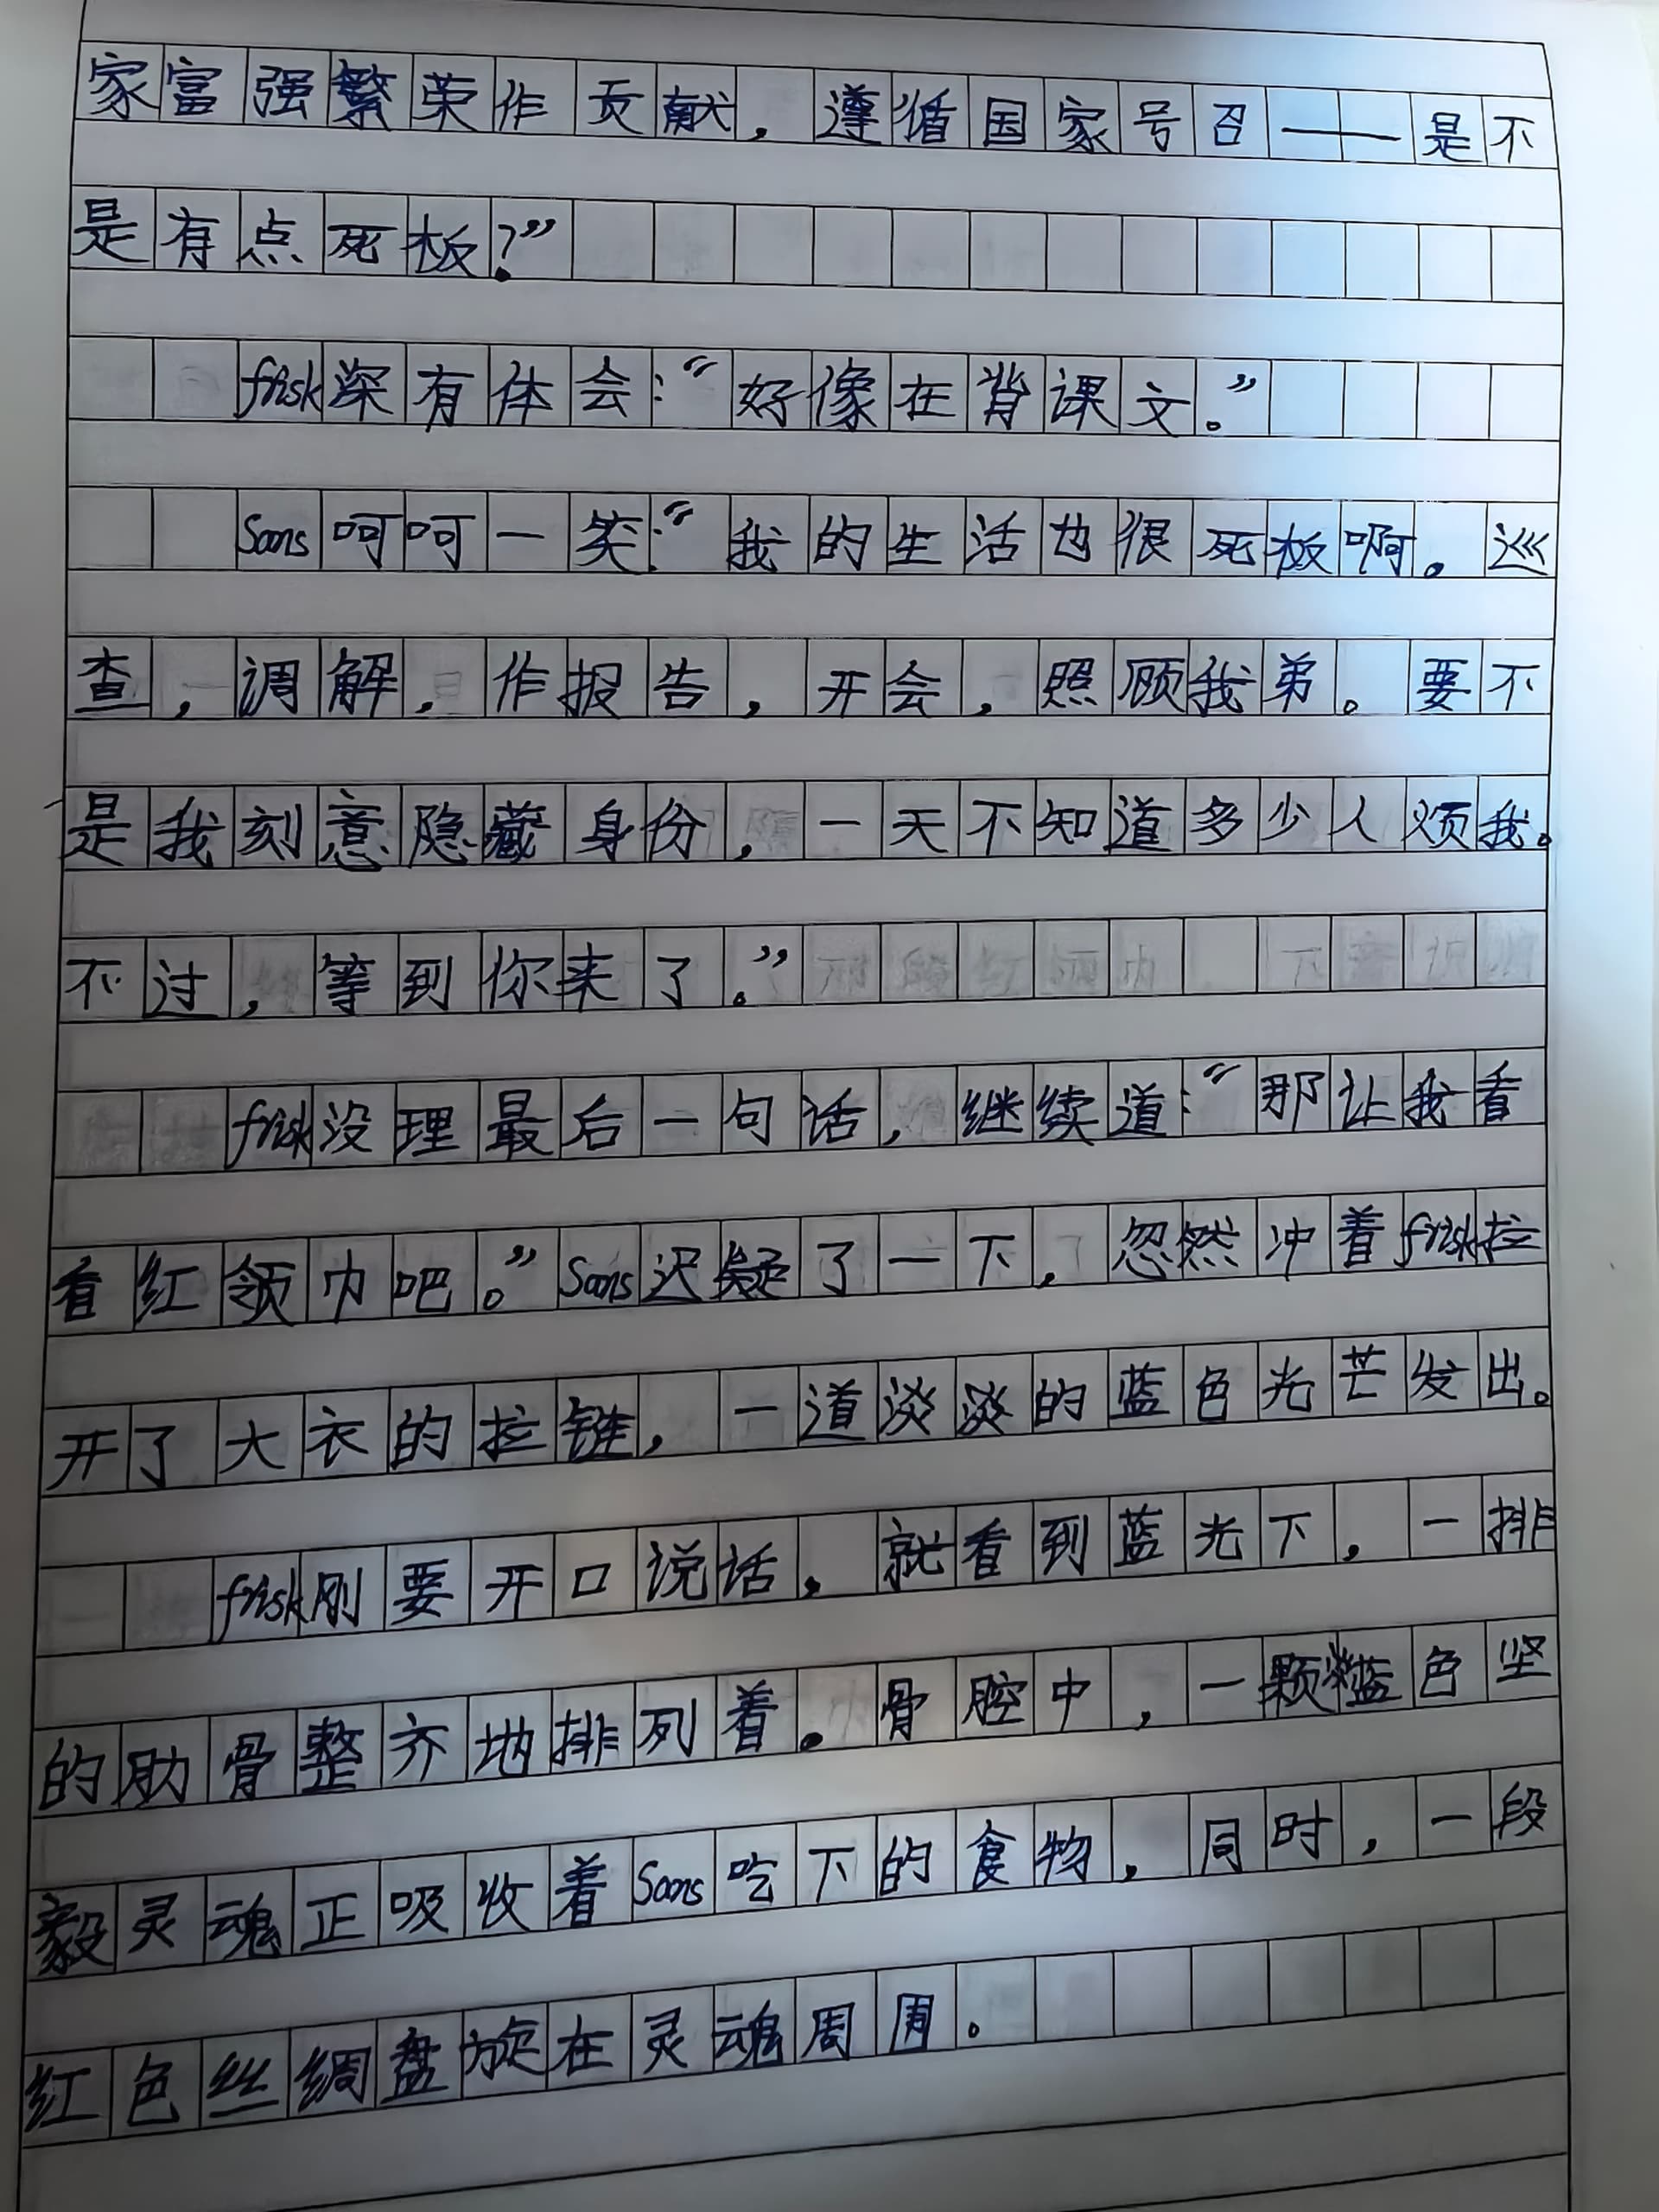 家富强繁荣作贡献，遵循国家号召——是不
是有点死板？”
frisk深有体会：“好像在背课文。”
Sans呵呵一笑：“我的生活也很死板啊。巡
查，调解，作报告，开会，照顾我弟。要不
是我刻意隐藏身份，一天不知道多少人烦我。
不过，等到你来了。”
frisk没理最后一句话，继续道：“那让我看
看红领巾吧。”Sans迟疑了一下，忽然冲着frisk拉
开了大衣的拉链，一道淡淡的蓝色光芒发出。
frisk刚要开口说话，就看到蓝光下，一排
的肋骨整齐地排列着。骨腔中，一颗蓝色坚
毅灵魂正吸收着Sans吃下的食物，同时，一段
红色丝绸盘旋在灵魂周围。